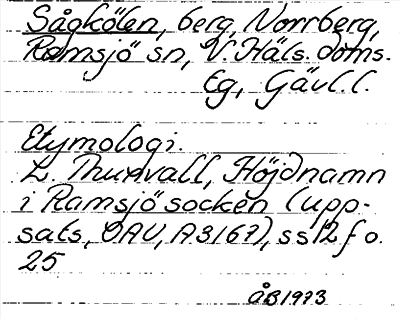 Sågkölen, berg, Norrberg,
Ramsjö sn, V. Häls. doms.
Eg, Gävl. l.
Etymologi.
L. Thunvall, Höjdnamn
i Ramsjö socken (upp-
sats, OAU, A3167), ss 12 f o.
25
ÅB 1973